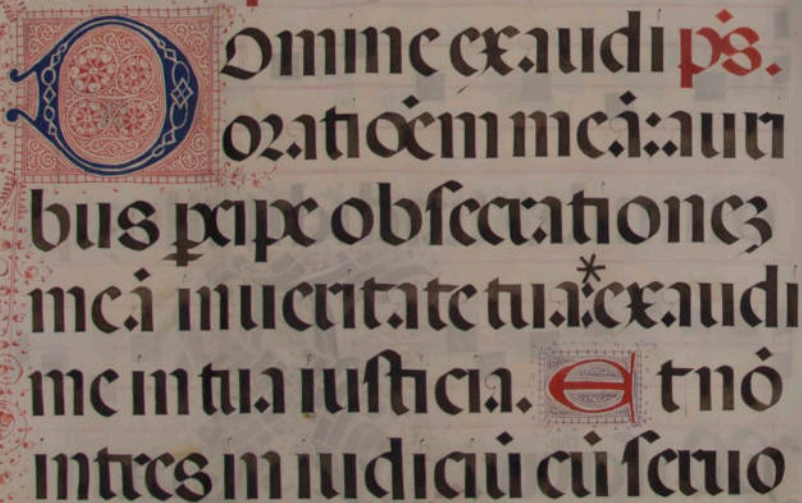 Domine exaudi p̄s.
oratiōem meā: auri
bus ꝑcipe obsecrationeꝫ
meā in ueritate tua:* exaudi
me in tua iusticia. Et nō
intres in iudiciū cū seruo